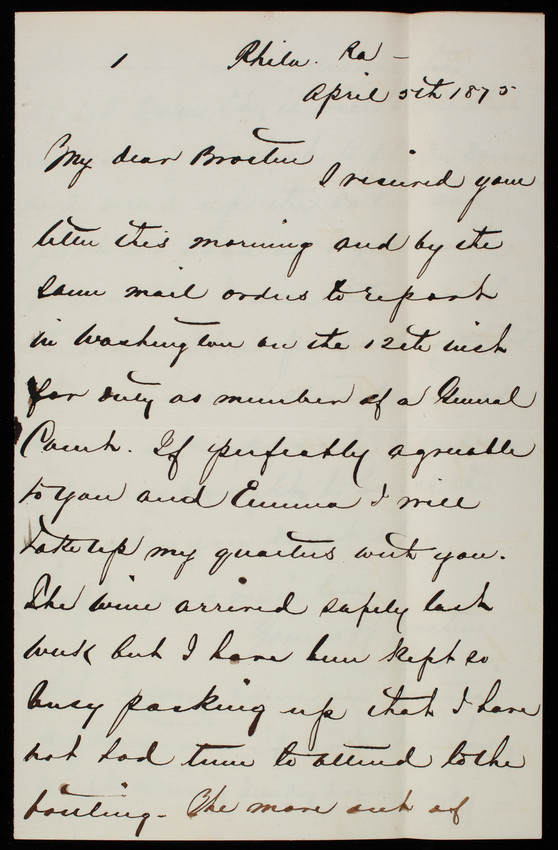 1
Phila. Pa -
April 5th 1875
My dear Brother
I received your
letter this morning and by the
same mail orders to report
in Washington on the 12th inst
for duty as member of a General
Court. If perfectly agreeable
to you and Emma I will
take up my quarters with you.
The wine arrived safely last
week but I have been kept so
busy packing up that I have
not had time to attend to the
bottling. The move out of